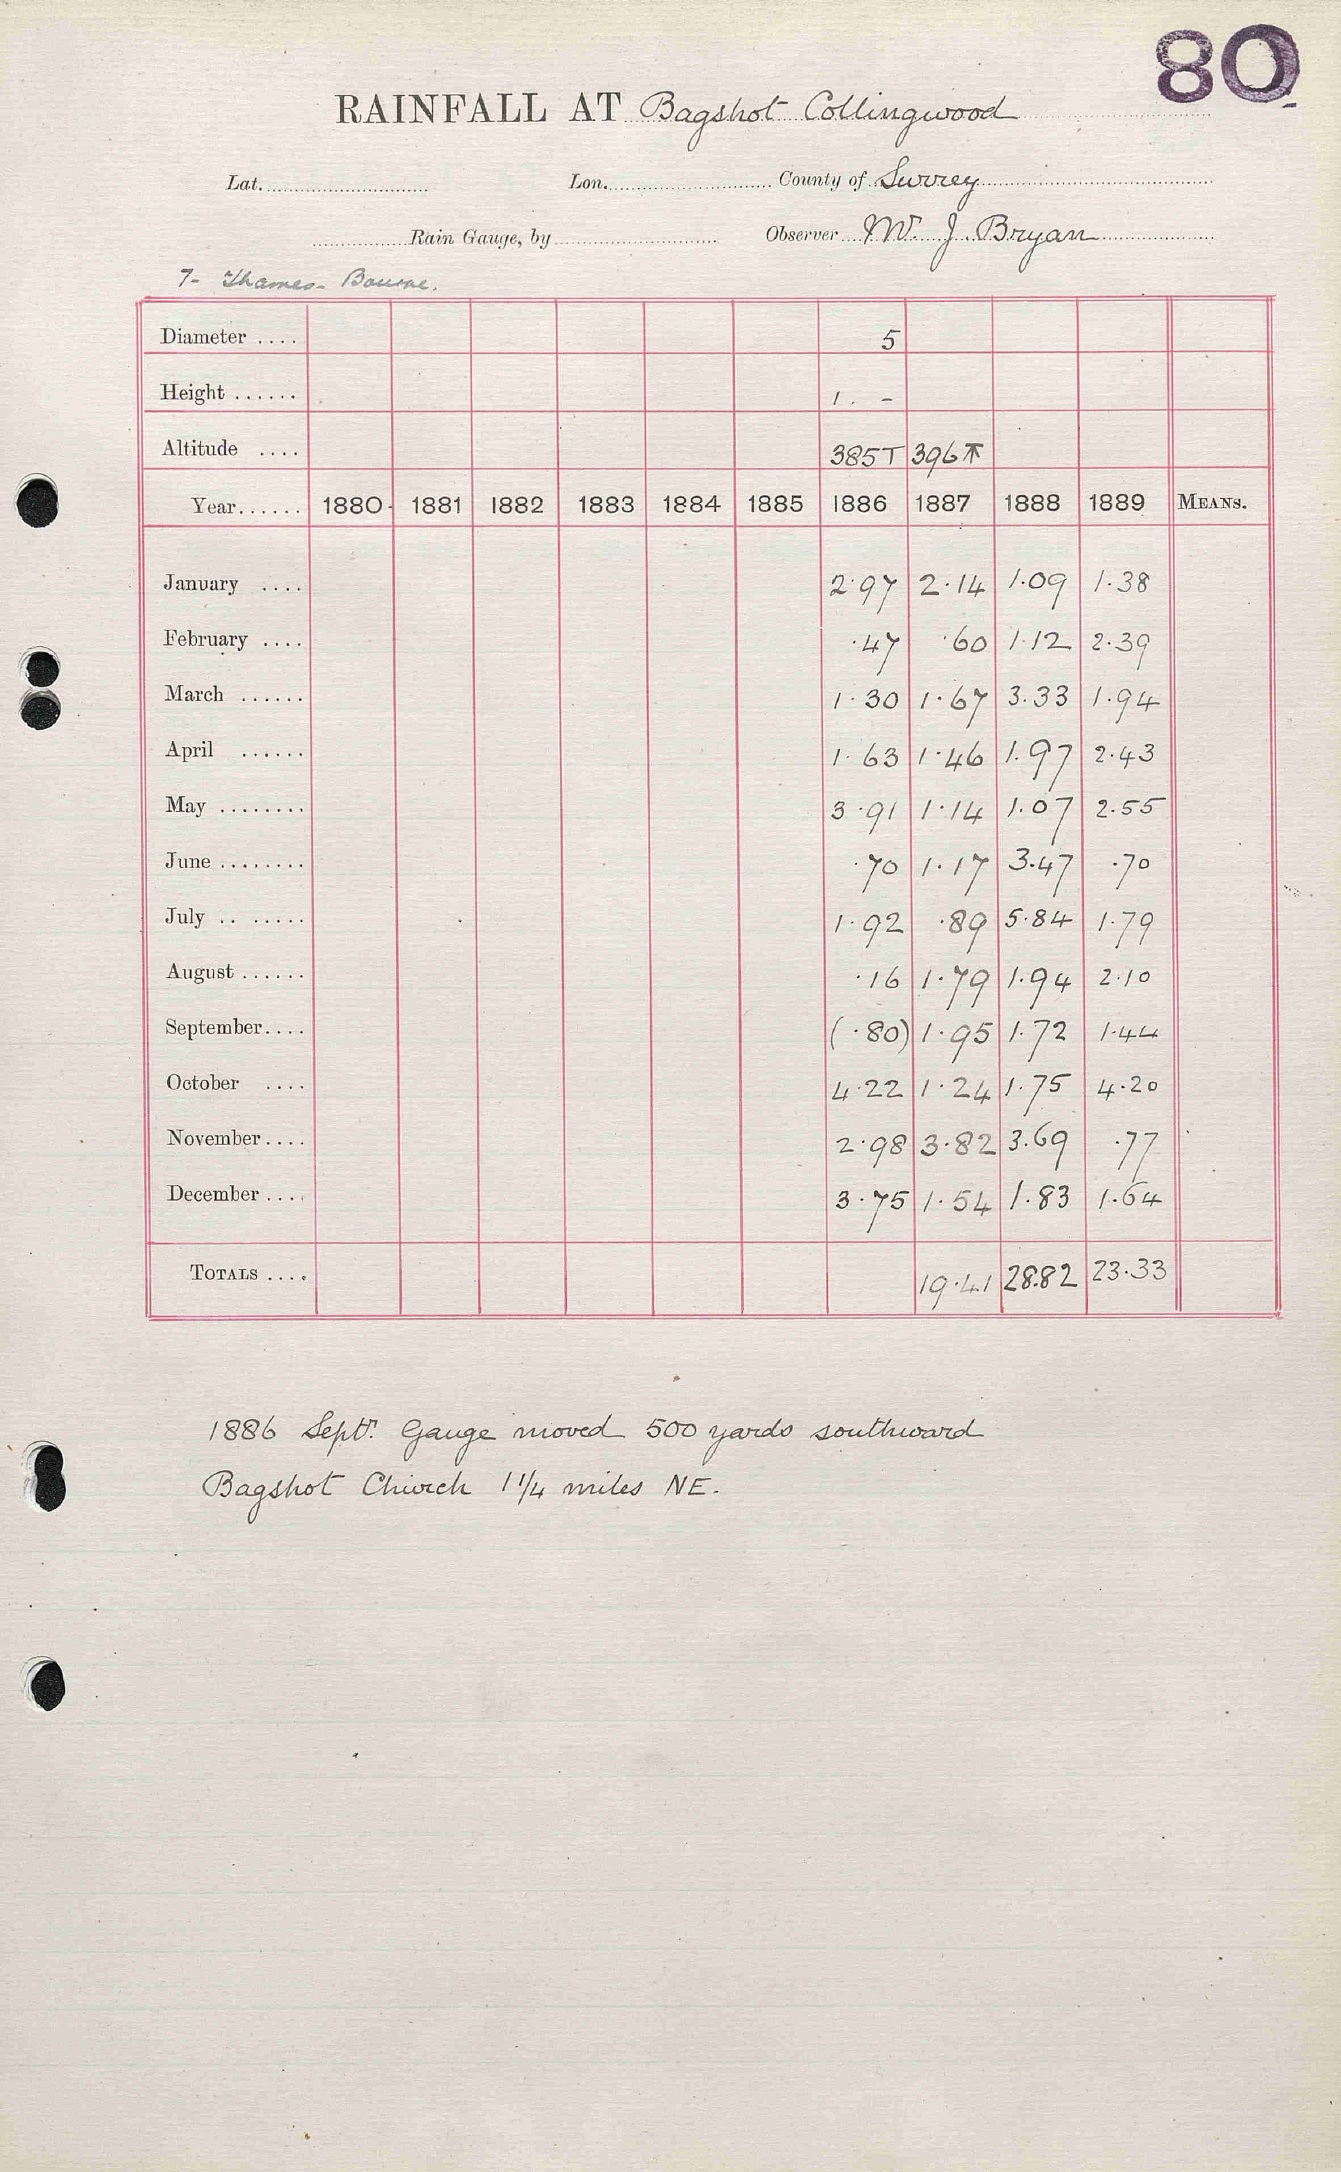 80
RAINFALL AT Bagshot Collingwood
Lat. Lon. County of Surrey
Rain Gauge, by Observer W. J. Bryan
7- Thames- Bourne.
Diameter .... 5
Height ...... 1. -
Altitude .... 385T 396
Year...... 1880 1881 1882 1883 1884 1885 1886 1887 1888 1889 MEANS.
January .... 2.97 2.14 1.09 1.38
February .... .47 .60 1.12 2.39
March ...... 1.30 1.67 3.33 1.94
April ...... 1.63 1.46 1.97 2.43
May ........ 3.91 1.14 1.07 2.55
June ........ .70 1.17 3.47 .70
July .. ..... 1.92 .89 5.84 1.79
August ...... .16 1.79 1.94 2.10
September.... (.80) 1.95 1.72 1.44
October .... 4.22 1.24 1.75 4.20
November.... 2.98 3.82 3.69 .77
December .... 3.75 1.54 1.83 1.64
TOTALS .... 19.41 28.82 23.33
1886 Septr. Gauge moved 500 yards southward
Bagshot Church 1 1/4 miles NE.